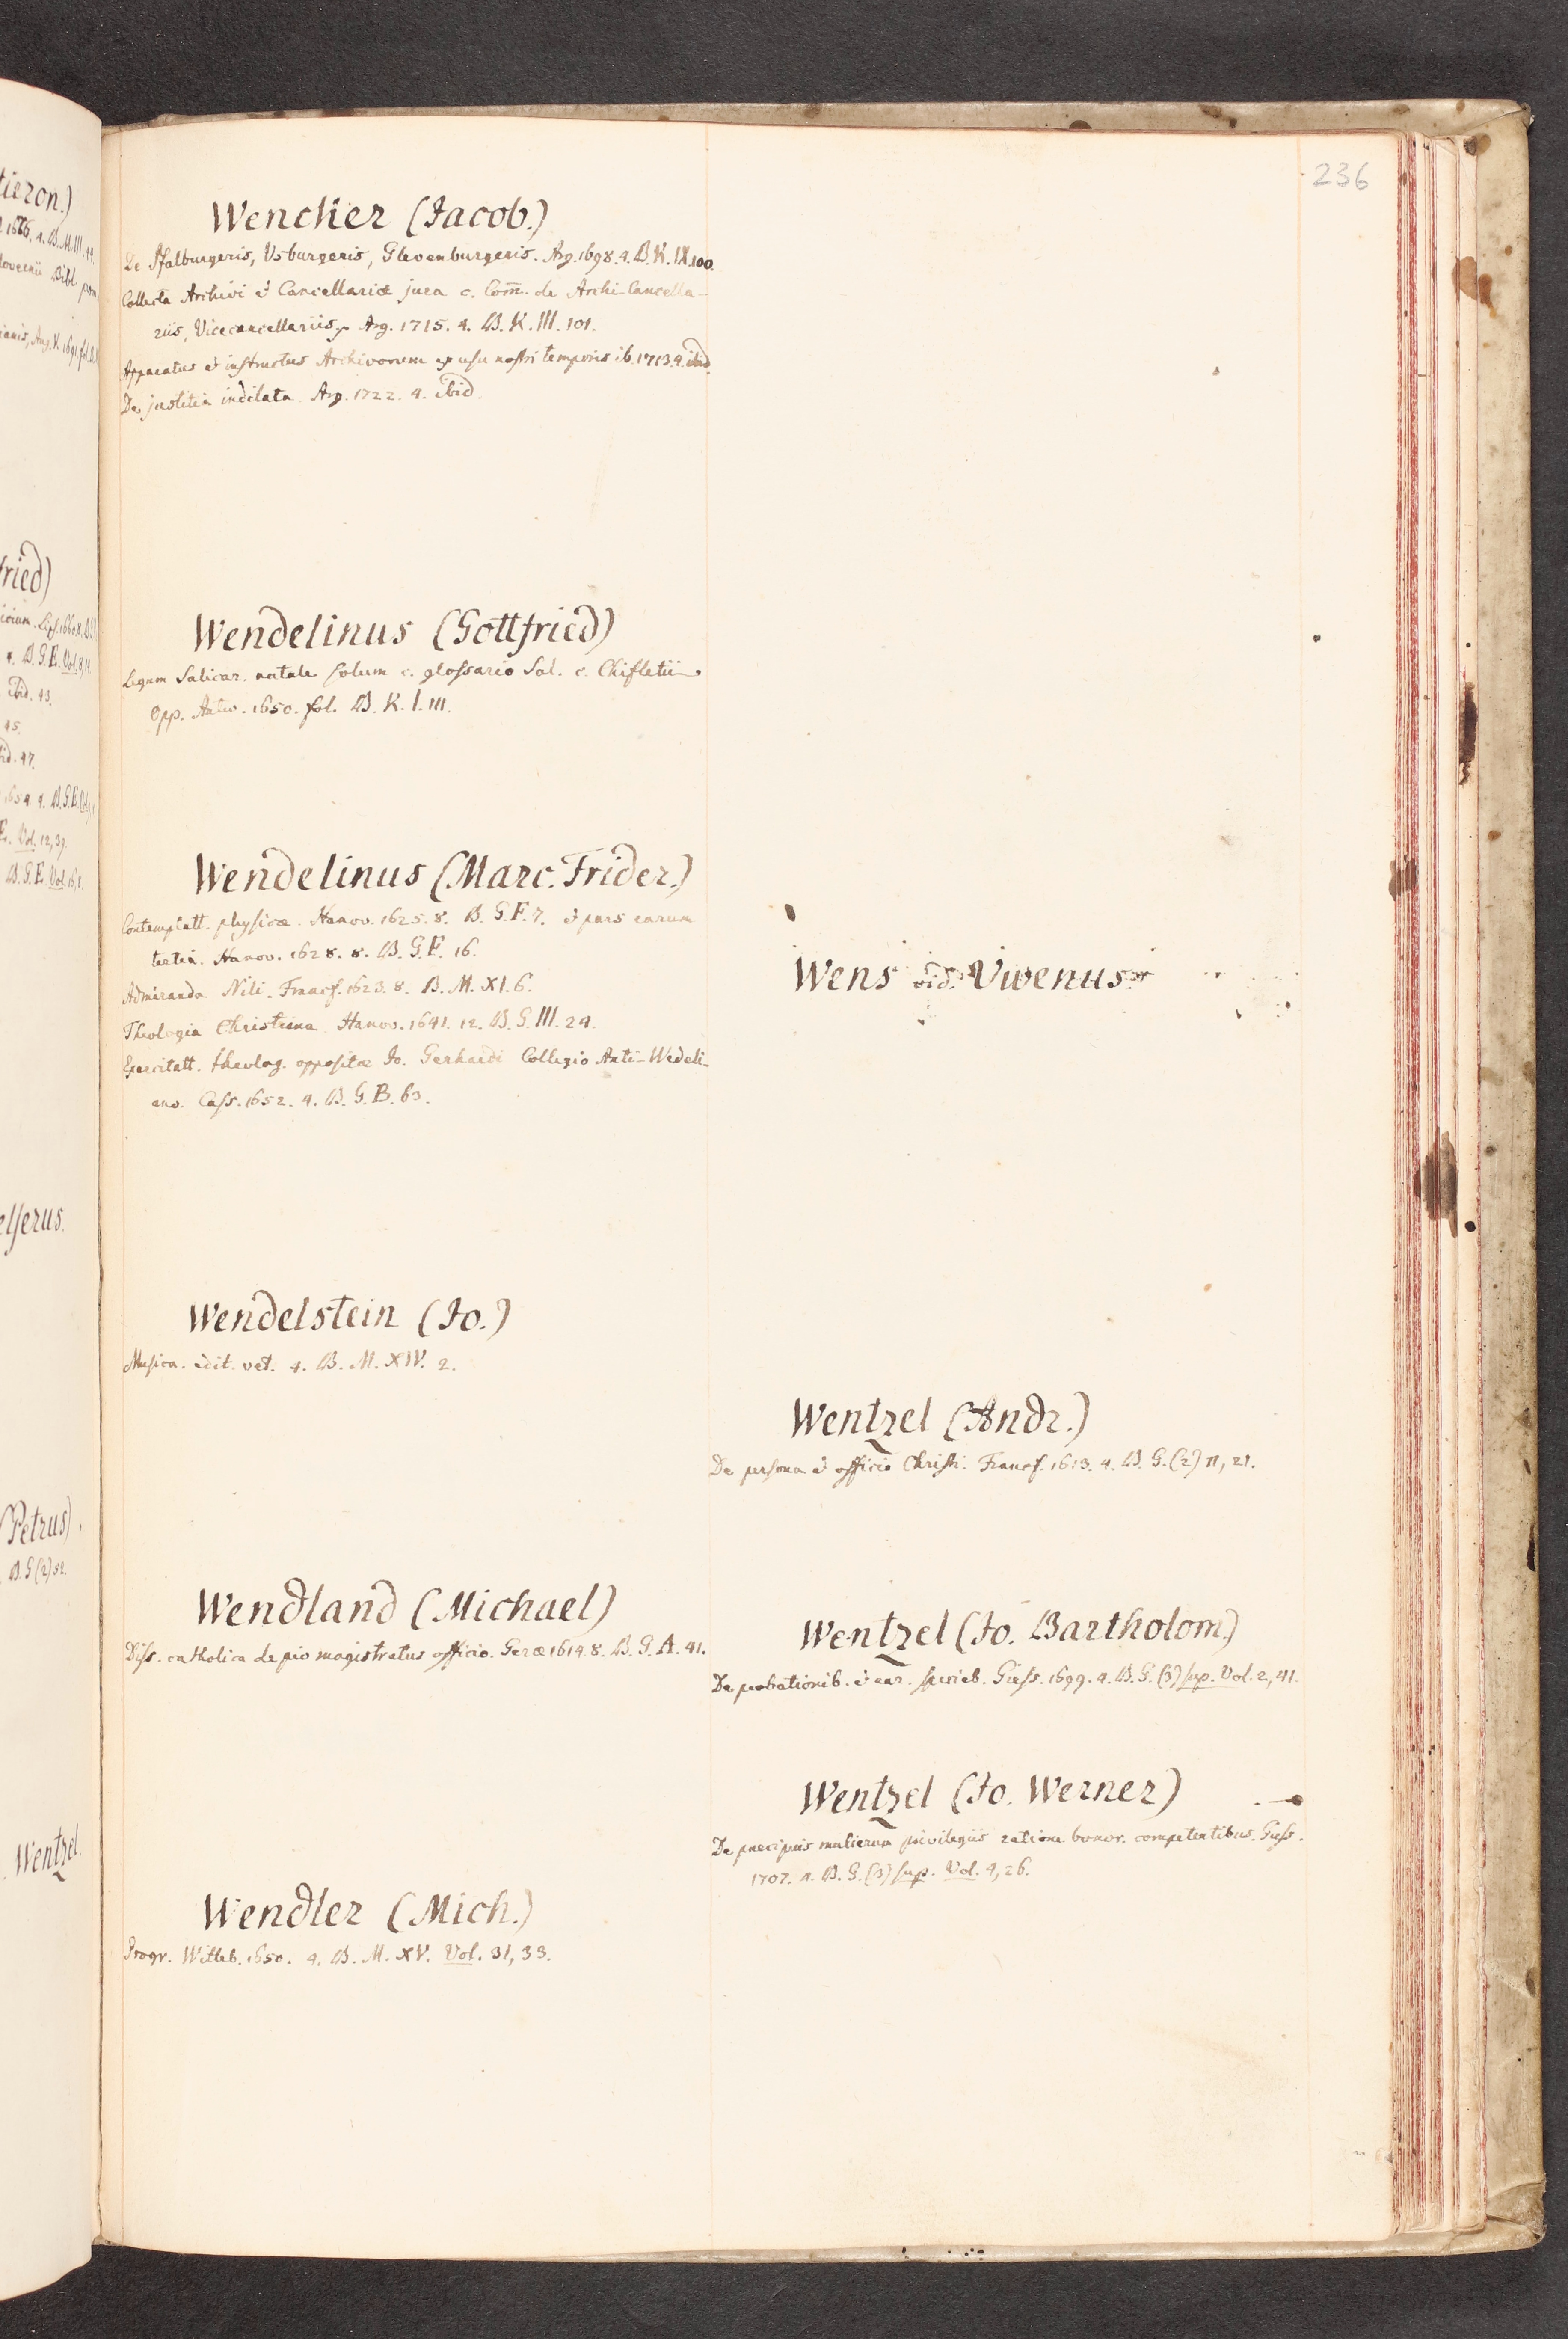 236
Wencker (Jacob.)
De Pfalburgeris, Usburgeris, Glevenburgeris. Arg. 1698. 4. B. K. IX. 100.
Collecta Archivi & Cancellariæ jura c. Com̄. de Archi-Cancella-
riis, Vicecancellariis, Arg. 1715. 4. B. K. III. 101.
Apparatus & instructus Archivorum ex usu nostri temporis ib. 1713. 4. ibid.
De justitia indilata. Arg. 1722. 4. ibid.
Wendelinus (Gottfried)
Legum Salicar. natale solum c. glossario Sal. c. Chifletii
Opp. Antw. 1650. fol. B. K. I. 111.
Wendelinus (Marc. Frider.)
Contemplatt. physicæ. Hanov. 1625. 8. B. G. F. 7. & pars earum
tertia. Hanov. 1628. 8. B. G. F. 16.
Admiranda Nili. Francf. 1623. 8. B. M. XI. 6.
Theologia Christiana. Hanov. 1641. 12. B. G. III. 24.
Exercitatt. theolog. oppositæ Jo. Gerhardi Collegio Anti-Wedeli-
ano. Cass. 1652. 4. B. G. B. 63.
Wendelstein (Jo.)
Musica. edit. vet. 4. B. M. XIV. 2.
Wendland (Michael)
Diss. catholica de pio magistratus officio. Geræ 1614. 8. B. G. A. 41.
Wendler (Mich.)
Progr. Witteb. 1650. 4. B. M. XV. Vol. 31, 33.
Wens vid. Vivenus
Wentzel (Andr.)
De persona & officio Christi. Francf. 1613. 4. B. G. (2) 11, 21.
Wentzel (Jo. Bartholom.)
De probationib. & ear. specieb. Giess. 1699. 4. B. G. (3) sup. Vol. 2, 41.
Wentzel (Jo. Werner)
De præcipuis mulierum privilegiis ratione bonor. competentibus. Giess.
1707. 4. B. G. (3) sup. Vol. 4, 26.